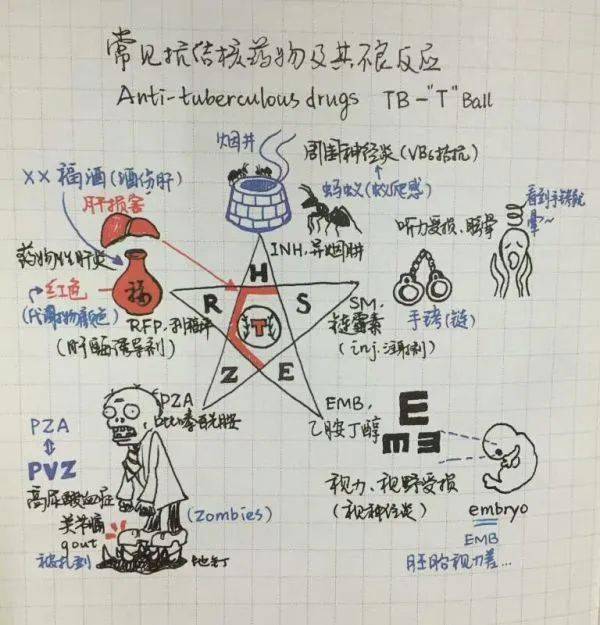 常见抗结核药物及其不良反应
Anti-tuberculous drugs TB-"T" Ball
烟井
周围神经炎(VB6拮抗)
蚂蚁(蚁爬感)
××福酒(酒伤肝)
肝损害
药物性肝炎
红色
(代谢物颜色)
福
RFP,利福平
(肝酶诱导剂)
INH,异烟肼
听力受损、眩晕
看到手铐就
晕~
手铐(链)
H
R
S
T
Z
E
SM,
链霉素
(inj.注射剂)
PZA
吡嗪酰胺
EMB,
乙胺丁醇
PZA
PVZ
高尿酸血症
关节痛
gout
被扎到
(Zombies)
地钉
E
视力、视野受损
(视神经炎)
embryo
EMB
胚胎视力差...